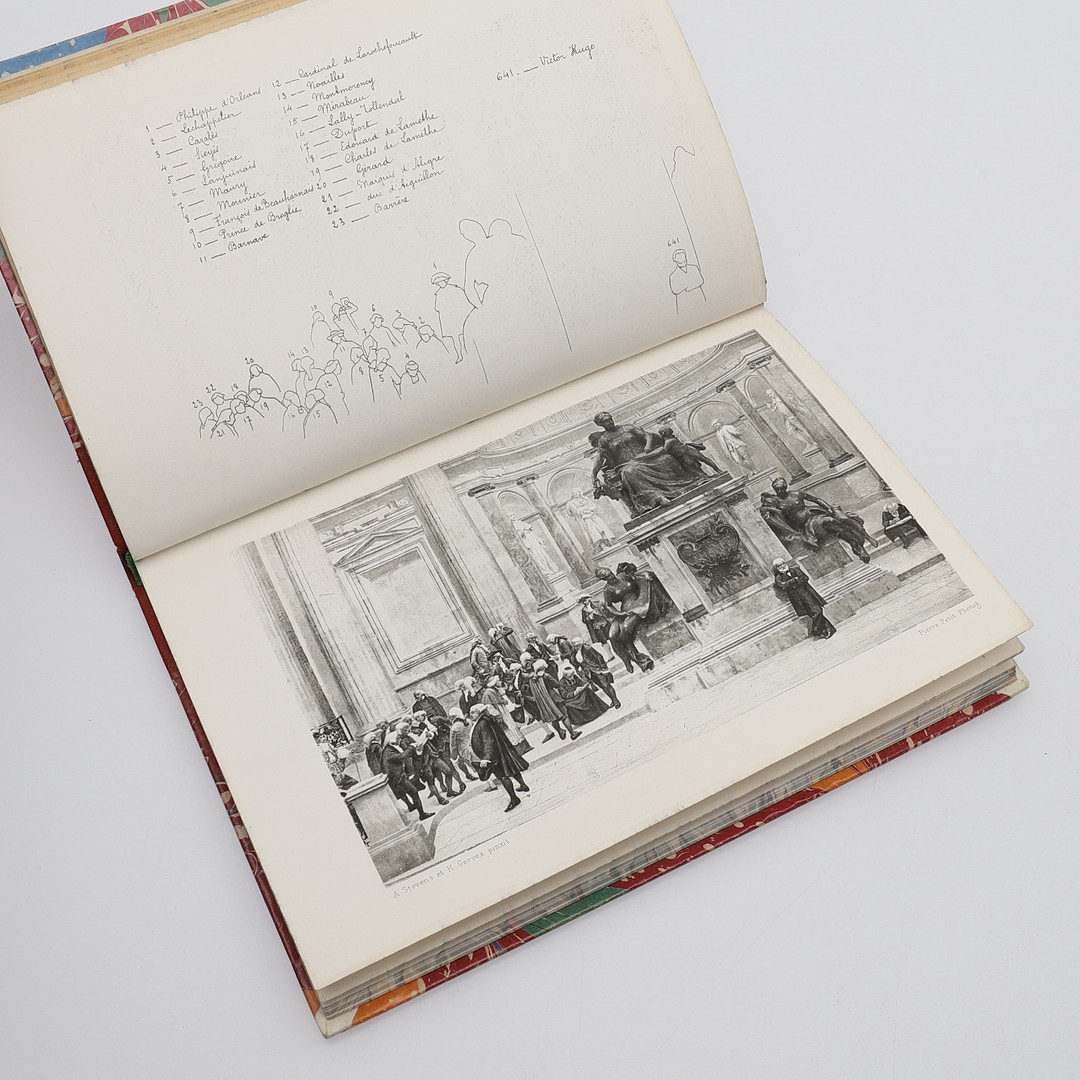 1 — Philippe d'Orléans
2 — Lechappelier
3 — Carales
4 — Sieyès
5 — Grégoire
6 — Lanjuinais
7 — Maury
8 — Mounier
9 — François de Beauharnais
10 — Prince de Broglie
11 — Barnave
12 — Cardinal de Larochefoucault
13 — Noailles
14 — Montmorency
15 — Mirabeau
16 — Lally-Tollendal
17 — Duport
18 — Edouard de Lamethe
19 — Charles de Lamethe
20 — Gérard
21 — Marquis d'Aligre
22 — duc d'Aiguillon
23 — Barrère
641. — Victor Hugo
641
A. Stevens et H. Gervex pinxit
Pierre Petit Photog